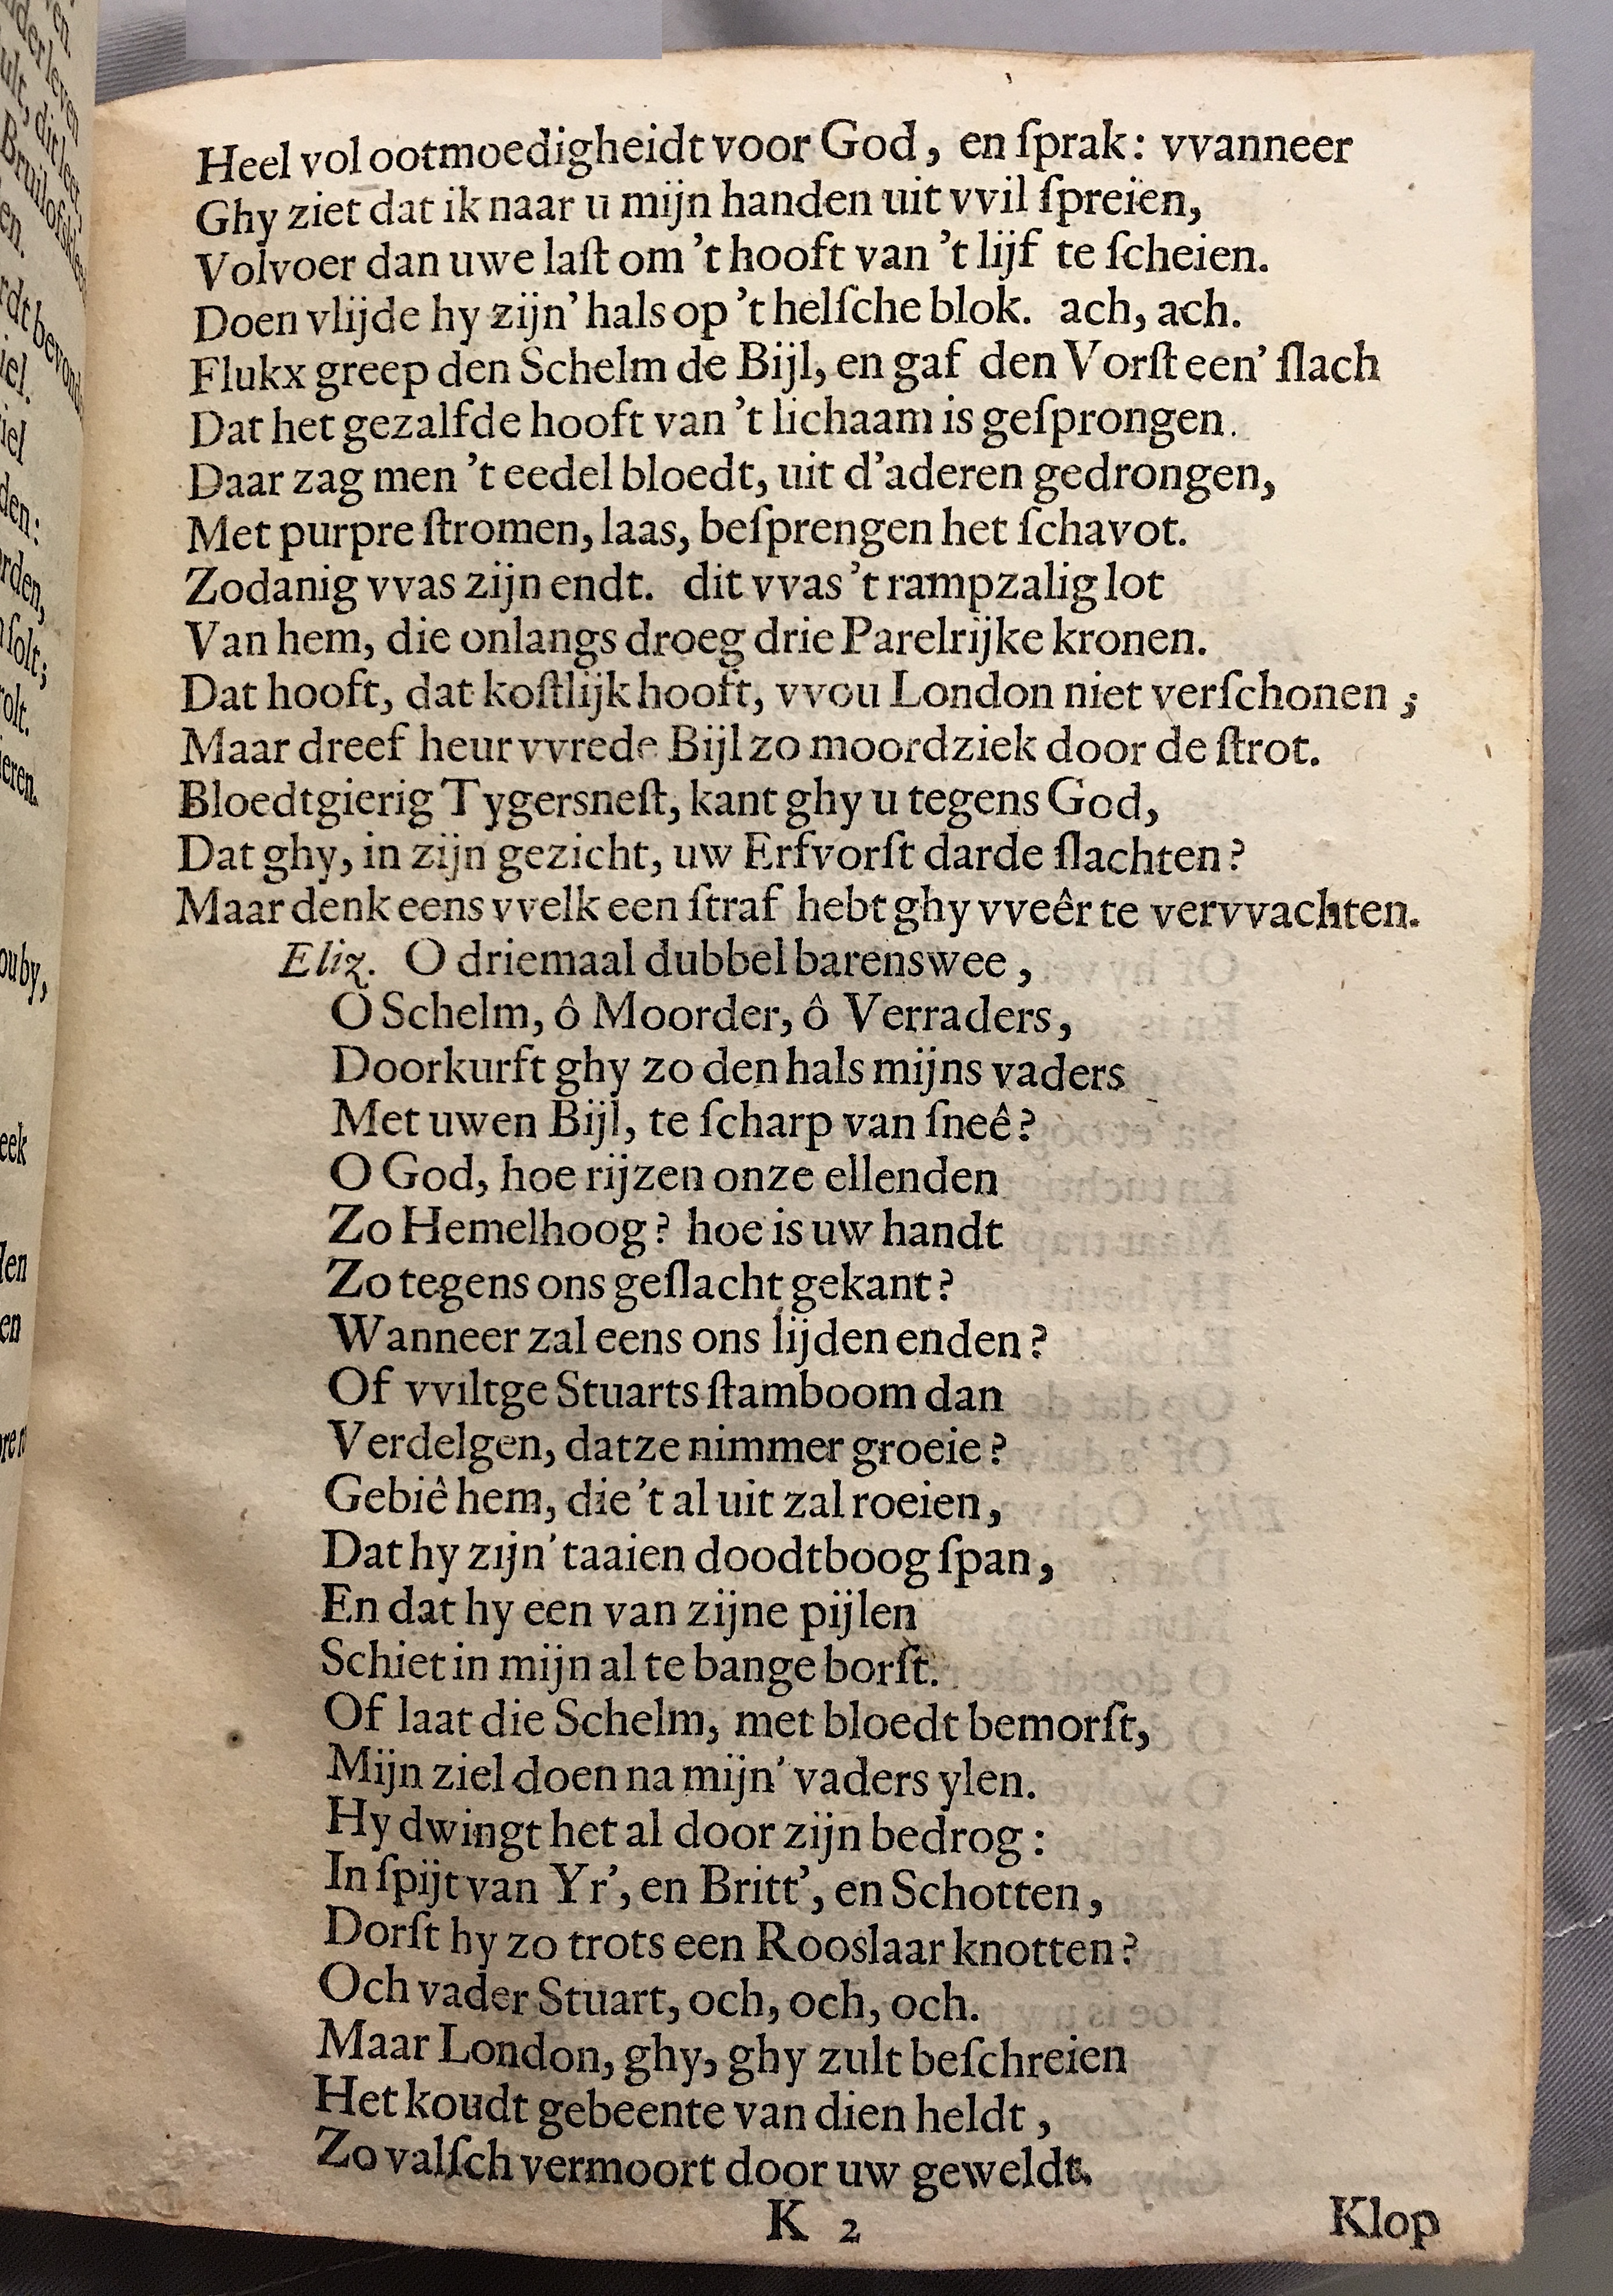 Heel vol ootmoedigheidt voor God, en ſprak: vvanneer
Ghy ziet dat ik naar u mijn handen uit vvil ſpreien,
Volvoer dan uwe laſt om 't hooft van 't lijf te ſcheien.
Doen vlijde hy zijn' hals op 't helſche blok. ach, ach.
Flukx greep den Schelm de Bijl, en gaf den Vorſt een' ſlach
Dat het gezalfde hooft van 't lichaam is geſprongen.
Daar zag men 't eedel bloedt, uit d'aderen gedrongen,
Met purpre ſtromen, laas, beſprengen het ſchavot.
Zodanig vvas zijn endt. dit vvas 't rampzalig lot
Van hem, die onlangs droeg drie Parelrijke kronen.
Dat hooft, dat koſtlijk hooft, vvou London niet verſchonen;
Maar dreef heur vvrede Bijl zo moordziek door de ſtrot.
Bloedtgierig Tygersneſt, kant ghy u tegens God,
Dat ghy, in zijn gezicht, uw Erfvorſt darde ſlachten?
Maar denk eens vvelk een ſtraf hebt ghy vveêr te vervvachten.
Eliz. O driemaal dubbel barenswee,
O Schelm, ô Moorder, ô Verraders,
Doorkurft ghy zo den hals mijns vaders
Met uwen Bijl, te ſcharp van ſneê?
O God, hoe rijzen onze ellenden
Zo Hemelhoog? hoe is uw handt
Zo tegens ons geſlacht gekant?
Wanneer zal eens ons lijden enden?
Of vviltge Stuarts ſtamboom dan
Verdelgen, datze nimmer groeie?
Gebiê hem, die 't al uit zal roeien,
Dat hy zijn' taaien doodtboog ſpan,
En dat hy een van zijne pijlen
Schiet in mijn al te bange borſt.
Of laat die Schelm, met bloedt bemorſt,
Mijn ziel doen na mijn' vaders ylen.
Hy dwingt het al door zijn bedrog:
In ſpijt van Yr', en Britt', en Schotten,
Dorſt hy zo trots een Rooslaar knotten?
Och vader Stuart, och, och, och.
Maar London, ghy, ghy zult beſchreien
Het koudt gebeente van dien heldt,
Zo valſch vermoort door uw geweldt.
K 2 Klop